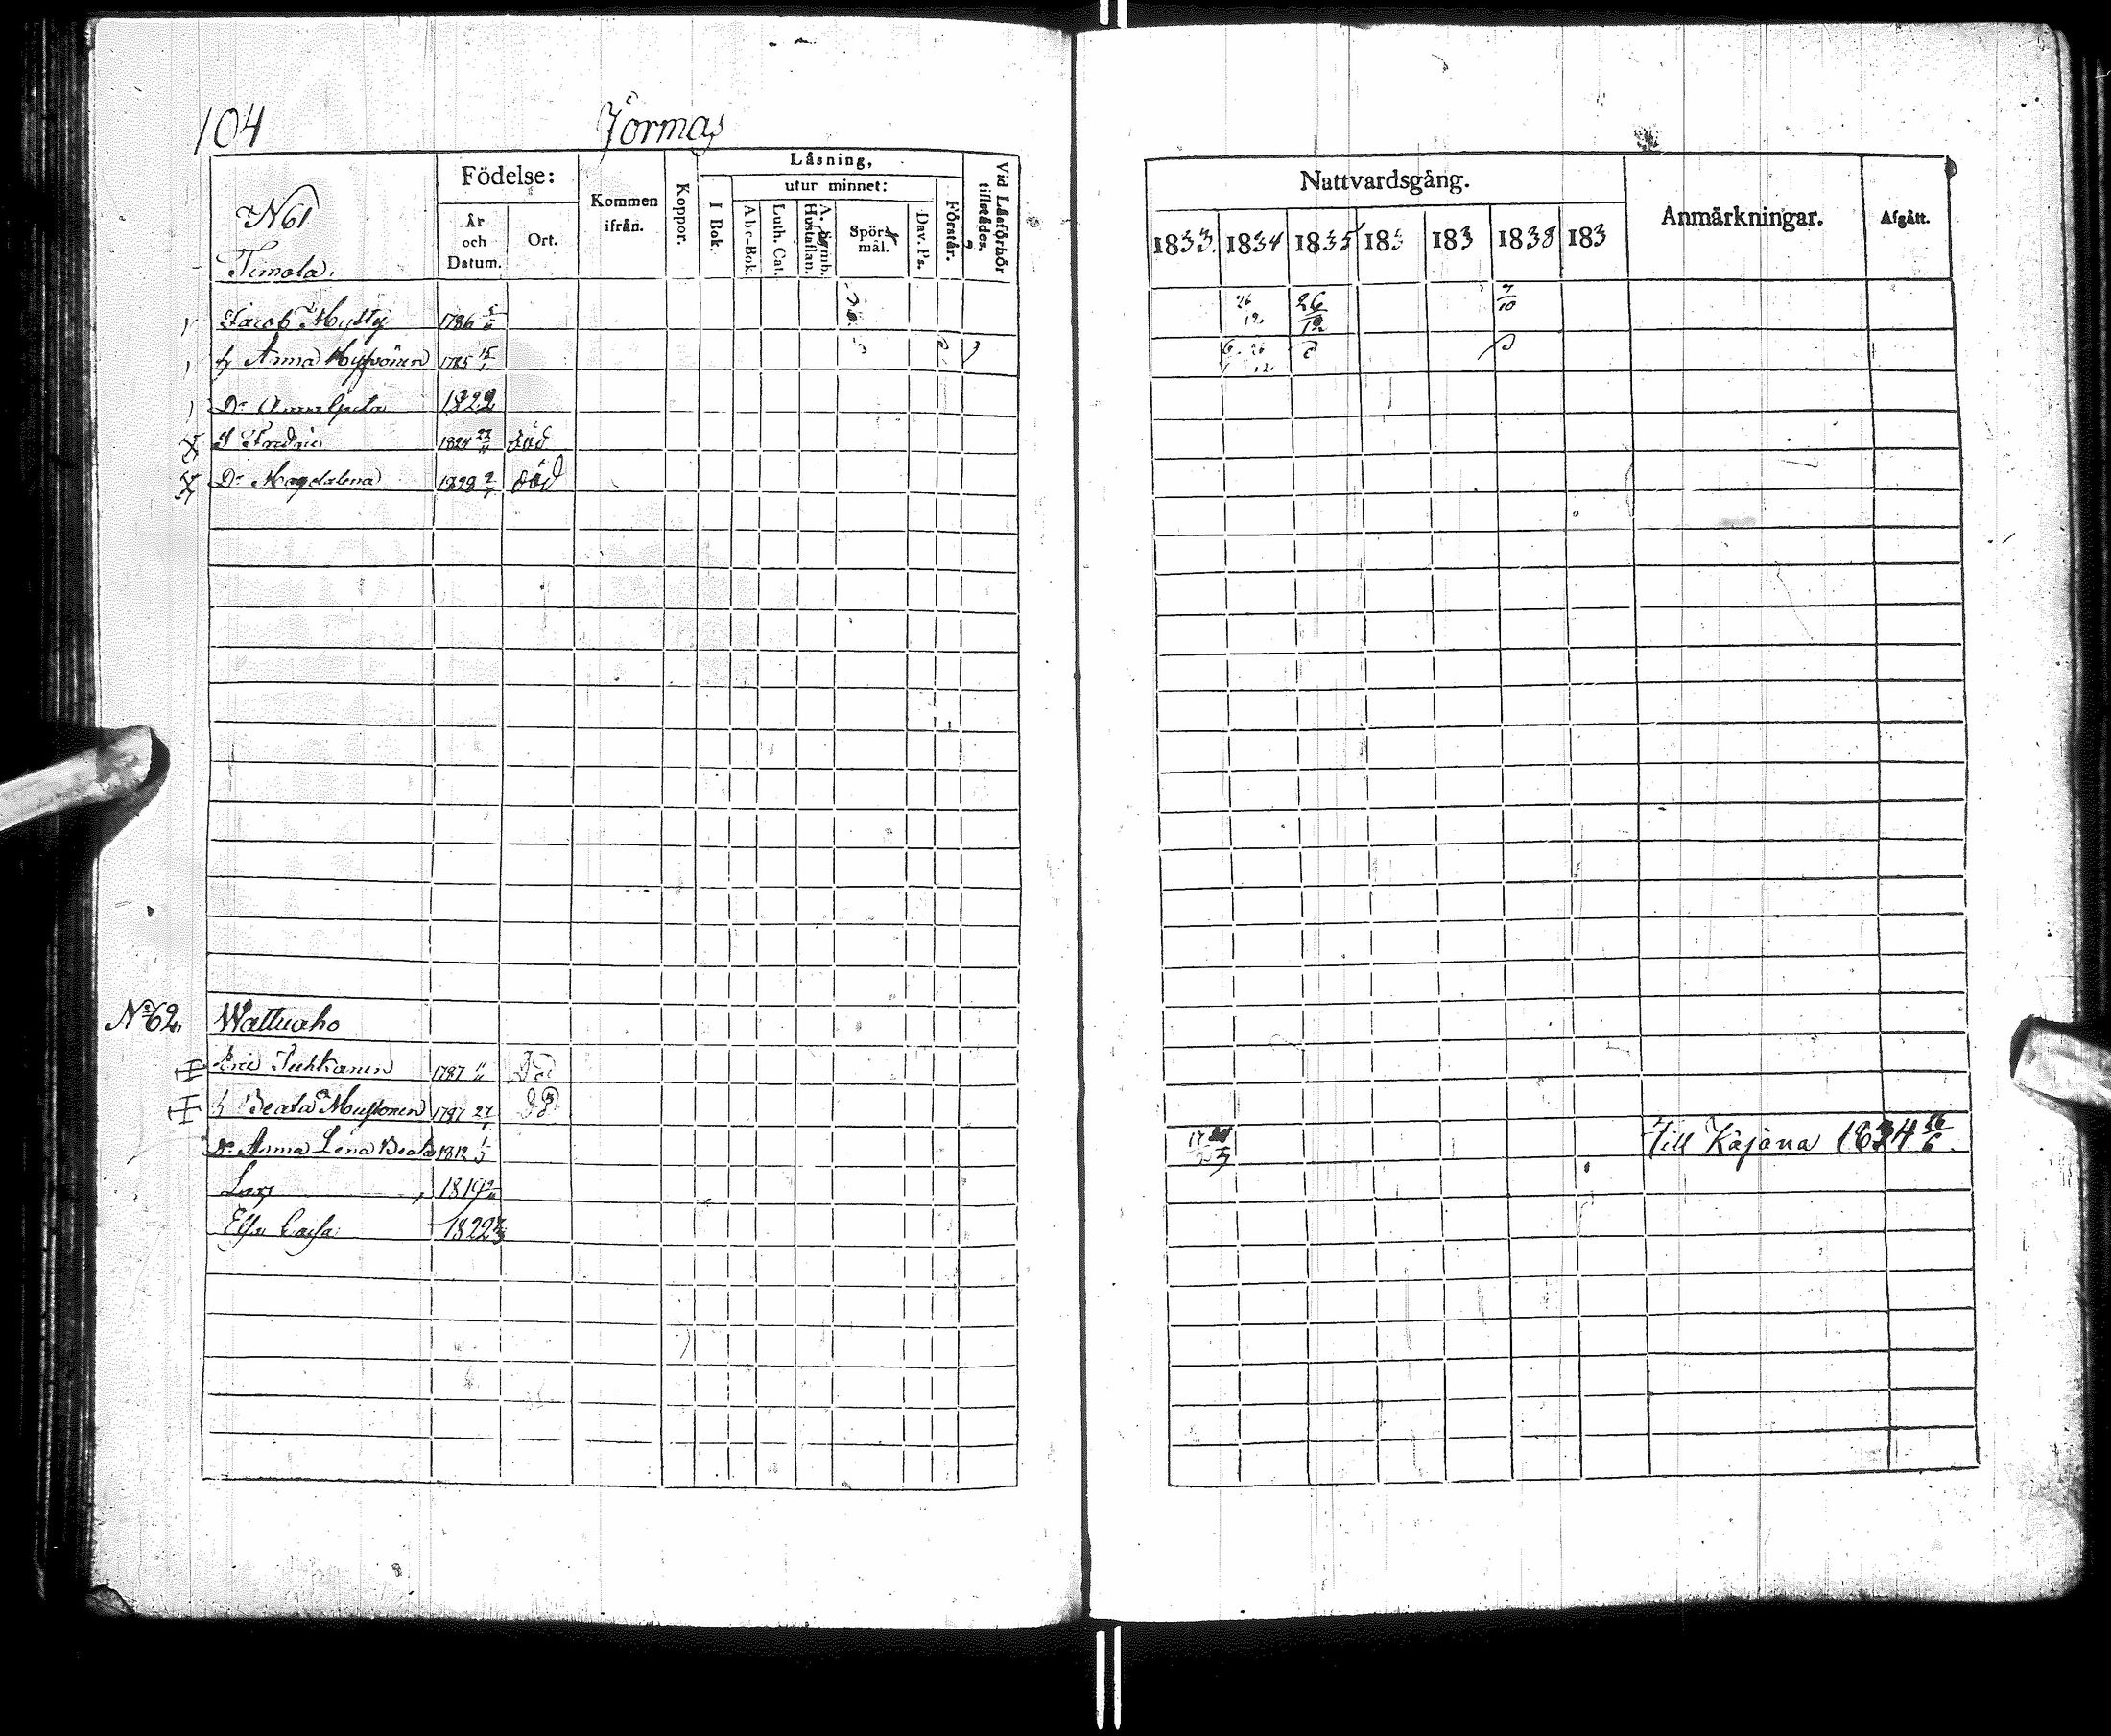 104 Jormas
Födelse: Kommen ifrån. Koppor. Läsning, Vid Läsförhör tillstädes.
utur minnet:
År och Datum. Ort. I Bok. Abc-Bok. Luth. Cat. A. Symb. Hustaflan. Spörsmål. Dav. Ps. Förstår.
N 61
Timola.
Jacob Mustoj 1786
h Anna 1785
Dr Anna Greta 1822
S Fredric 1824 27/11 död
Dr Magdalena 1828 död
No 62. Wattuaho
Eric 1787 11/11 Död
h Beata Mustonen 1787 27
Dr Anna Lena Beata 1812
Lars 1819
Elsa Caisa 1822
Nattvardsgång. Anmärkningar. Afgått.
1833. 1834 1835 183 183 1838 183
26/12 26/12 7/10
6 26
12
17
Till Kajana 1834 26/6.